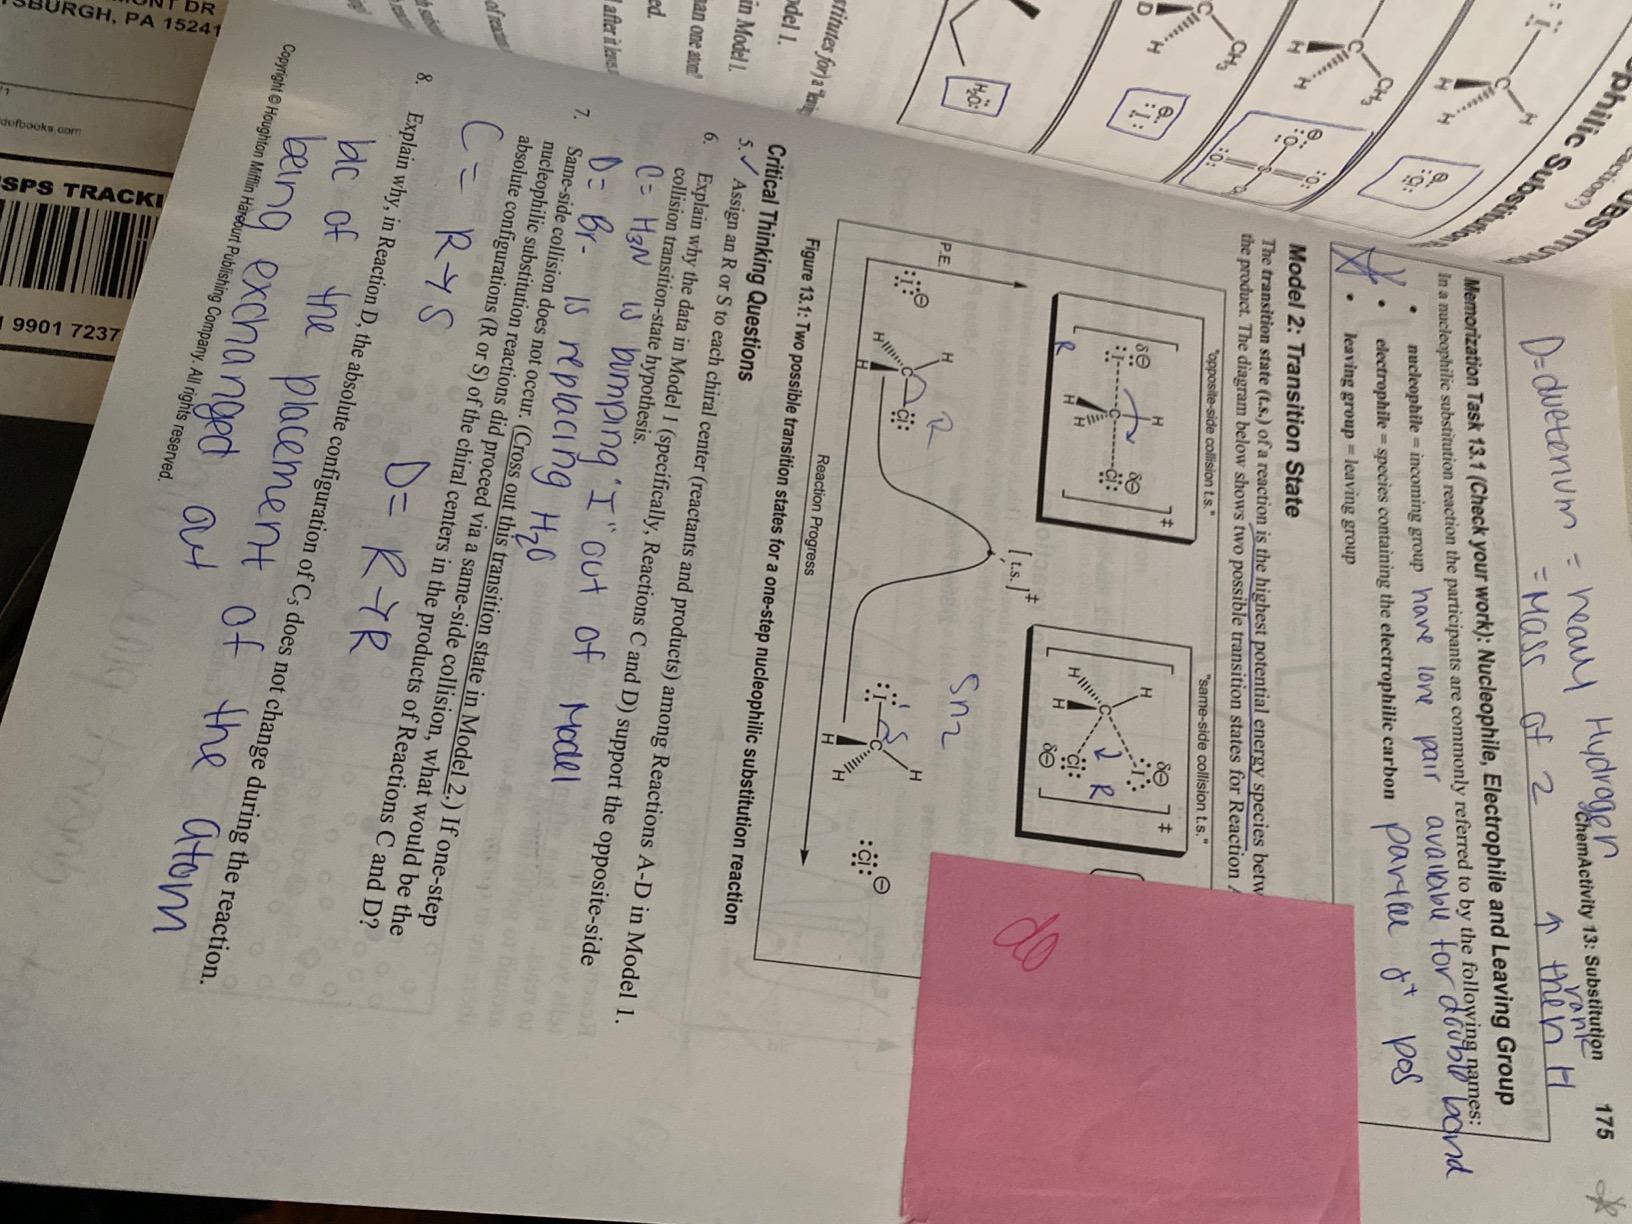 ChemActivity 13: Substitution 175
D=dueterium = heavy Hydrogen
= Mass of 2 ↑ rank then H
Memorization Task 13.1 (Check your work): Nucleophile, Electrophile and Leaving Group
In a nucleophilic substitution reaction the participants are commonly referred to by the following names:
• nucleophile = incoming group have lone pair available for double bond
• electrophile = species containing the electrophilic carbon partial δ+ pos
• leaving group = leaving group
Model 2: Transition State
The transition state (t.s.) of a reaction is the highest potential energy species betw
the product. The diagram below shows two possible transition states for Reaction
"opposite-side collision t.s."
"same-side collision t.s."
R
R
[t.s.]‡
Sn2
P.E.
R
S
Reaction Progress
Figure 13.1: Two possible transition states for a one-step nucleophilic substitution reaction
do
Critical Thinking Questions
5. ✓ Assign an R or S to each chiral center (reactants and products) among Reactions A-D in Model 1.
6. Explain why the data in Model 1 (specifically, Reactions C and D) support the opposite-side
collision transition-state hypothesis.
C= H3N is bumping "I" out of Model
D= Br- is replacing H2O
7. Same-side collision does not occur. (Cross out this transition state in Model 2.) If one-step
nucleophilic substitution reactions did proceed via a same-side collision, what would be the
absolute configurations (R or S) of the chiral centers in the products of Reactions C and D?
C= R→S D= R→R
8. Explain why, in Reaction D, the absolute configuration of C5 does not change during the reaction.
b/c of the placement of the atom
being exchanged at
Copyright © Houghton Mifflin Harcourt Publishing Company. All rights reserved.
SBURGH, PA 15241
dofbooks.com
9901 7237